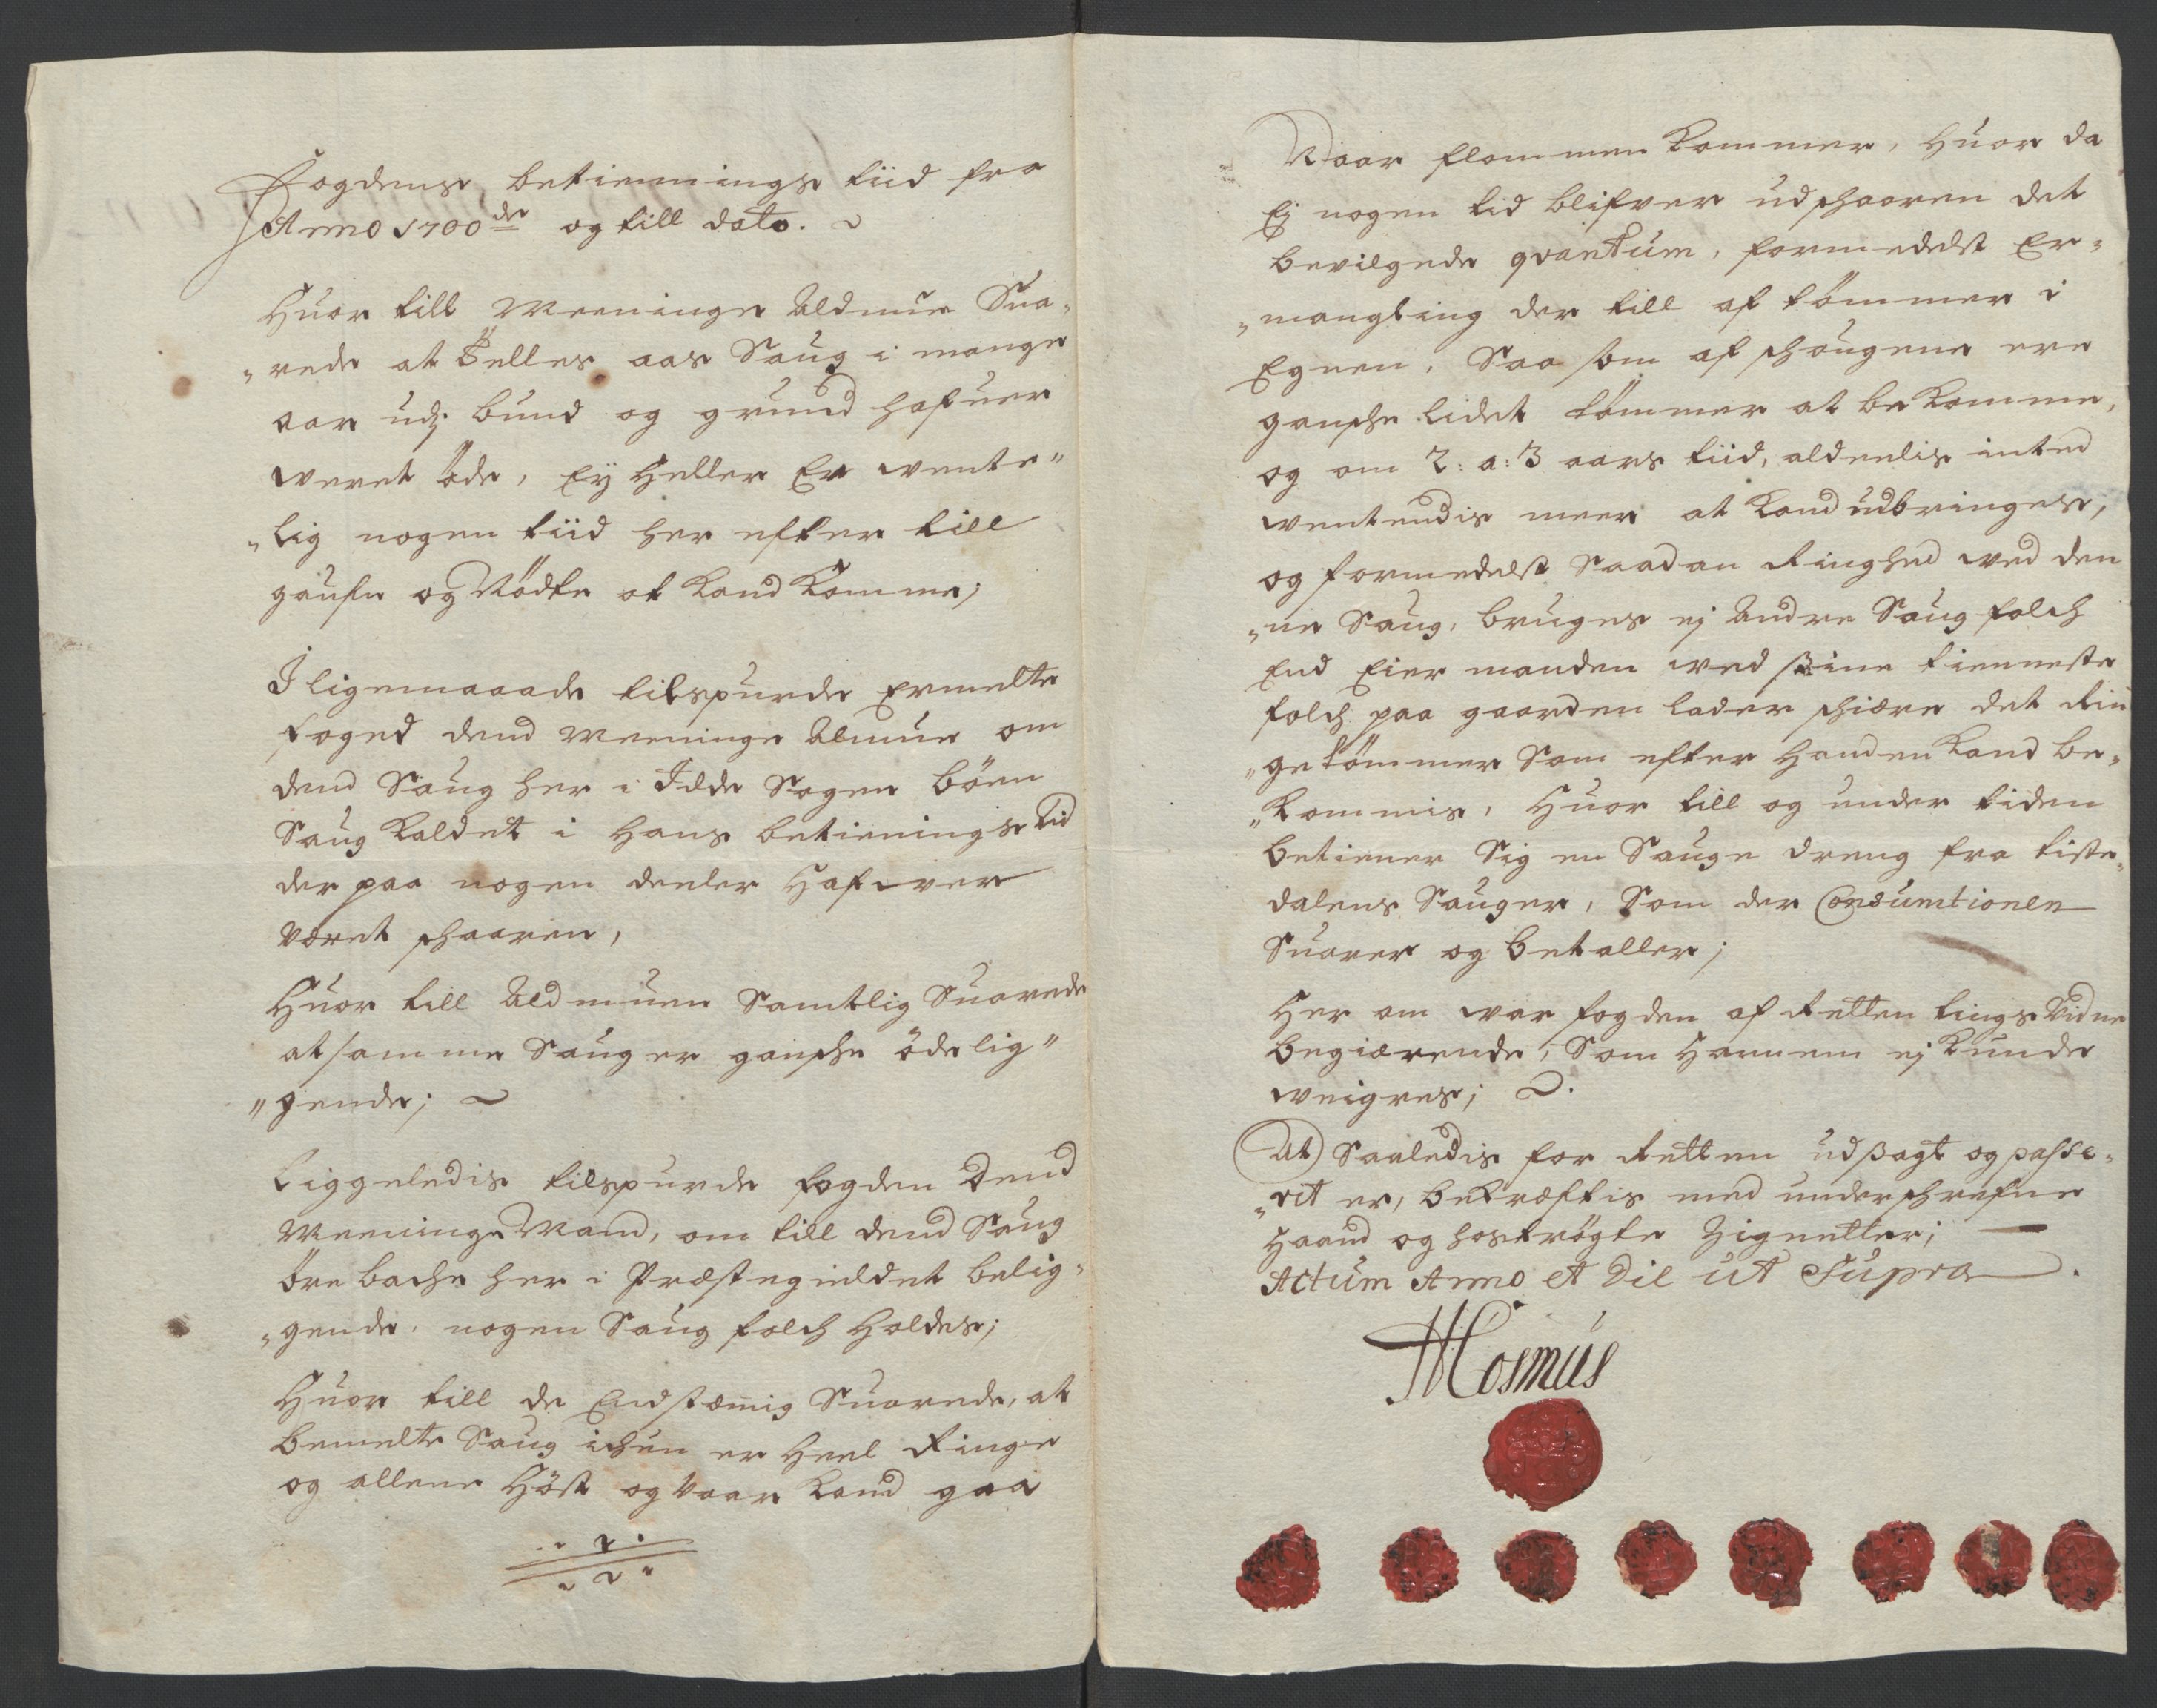 Fogdens betiennings tiid fra
Anno 1700de og till dato.
Huor till Meeninge Aldmue Sua„
„rede at Telles aas Saug i mange
aar udj bund og grund hafuer
weret öde, Eÿ Heller Er wente„
„lig nogen tiid her efter till
gaufn og Nödte at Kand Komme;
I ligemaaade tilspurde Ermelte
foged dend Meeninge Almue om
dend Saug her i Idde Sogen böen
Saug Kaldet i Hans betienings tid
der paa nogen deeler Hafwer
været schaaren,
Huor till Aldmuen Samtlig Suarede
at samme Saug er gansche ödelig„
„gende;
Liggeledis tilspurde fogden Dend
Meeninge Mand, om till dend Saug
öre bache her i Præstegieldet belig„
„gende, nogen Saug folch Holdes;
Huor till de Endstæmig Suarede, at
bemelte Saug ichun er Heel Ringe
og allene Höst og Vaar Kand gaa
Naar flommen Kommer, Huor da
Ej nogen tid blifver udschaaren det
bevilgede qvantum, formedelst Er„
„mangling der till af tömmer i
Egnen, Saa som af schougene ere
gansche lidet tömmer at beKomme,
og om 2: a: 3 aars tiid, aldeelis inted
wentendis meer at Kand udbringes,
og formedelst Saadan Ringhed wed den
„ne Saug, bruges ej Andre Saug folch
End Eier manden med sine tienneste
folch paa gaarden lader schiære det Rin
„ge tömmer Som efter Handen Kand be„
„Kommis, Huor till og under tiden
betiener Sig en Sauge dreng fra tiste„
dalens Sauger, Som der Consumtionen
Suarer og betaller;
Her om war fogden af Retten tings Vidne
begiærende, Som Hannem ej Kunde
weigres;
At Saaledis for Retten udsagt og passe„
„rit er, bekræftis med underschrefne
Haand og hoströgte Zignetter;
Actum Anno et Die ut Supra
Mosmus